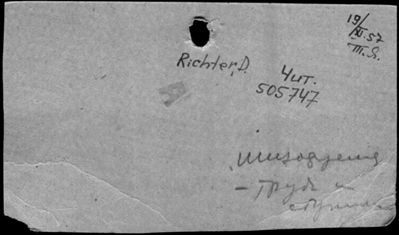 19/XI.57
Ш.Я.
Richter, D.
Чит.
505747
шизофрения
- труды и